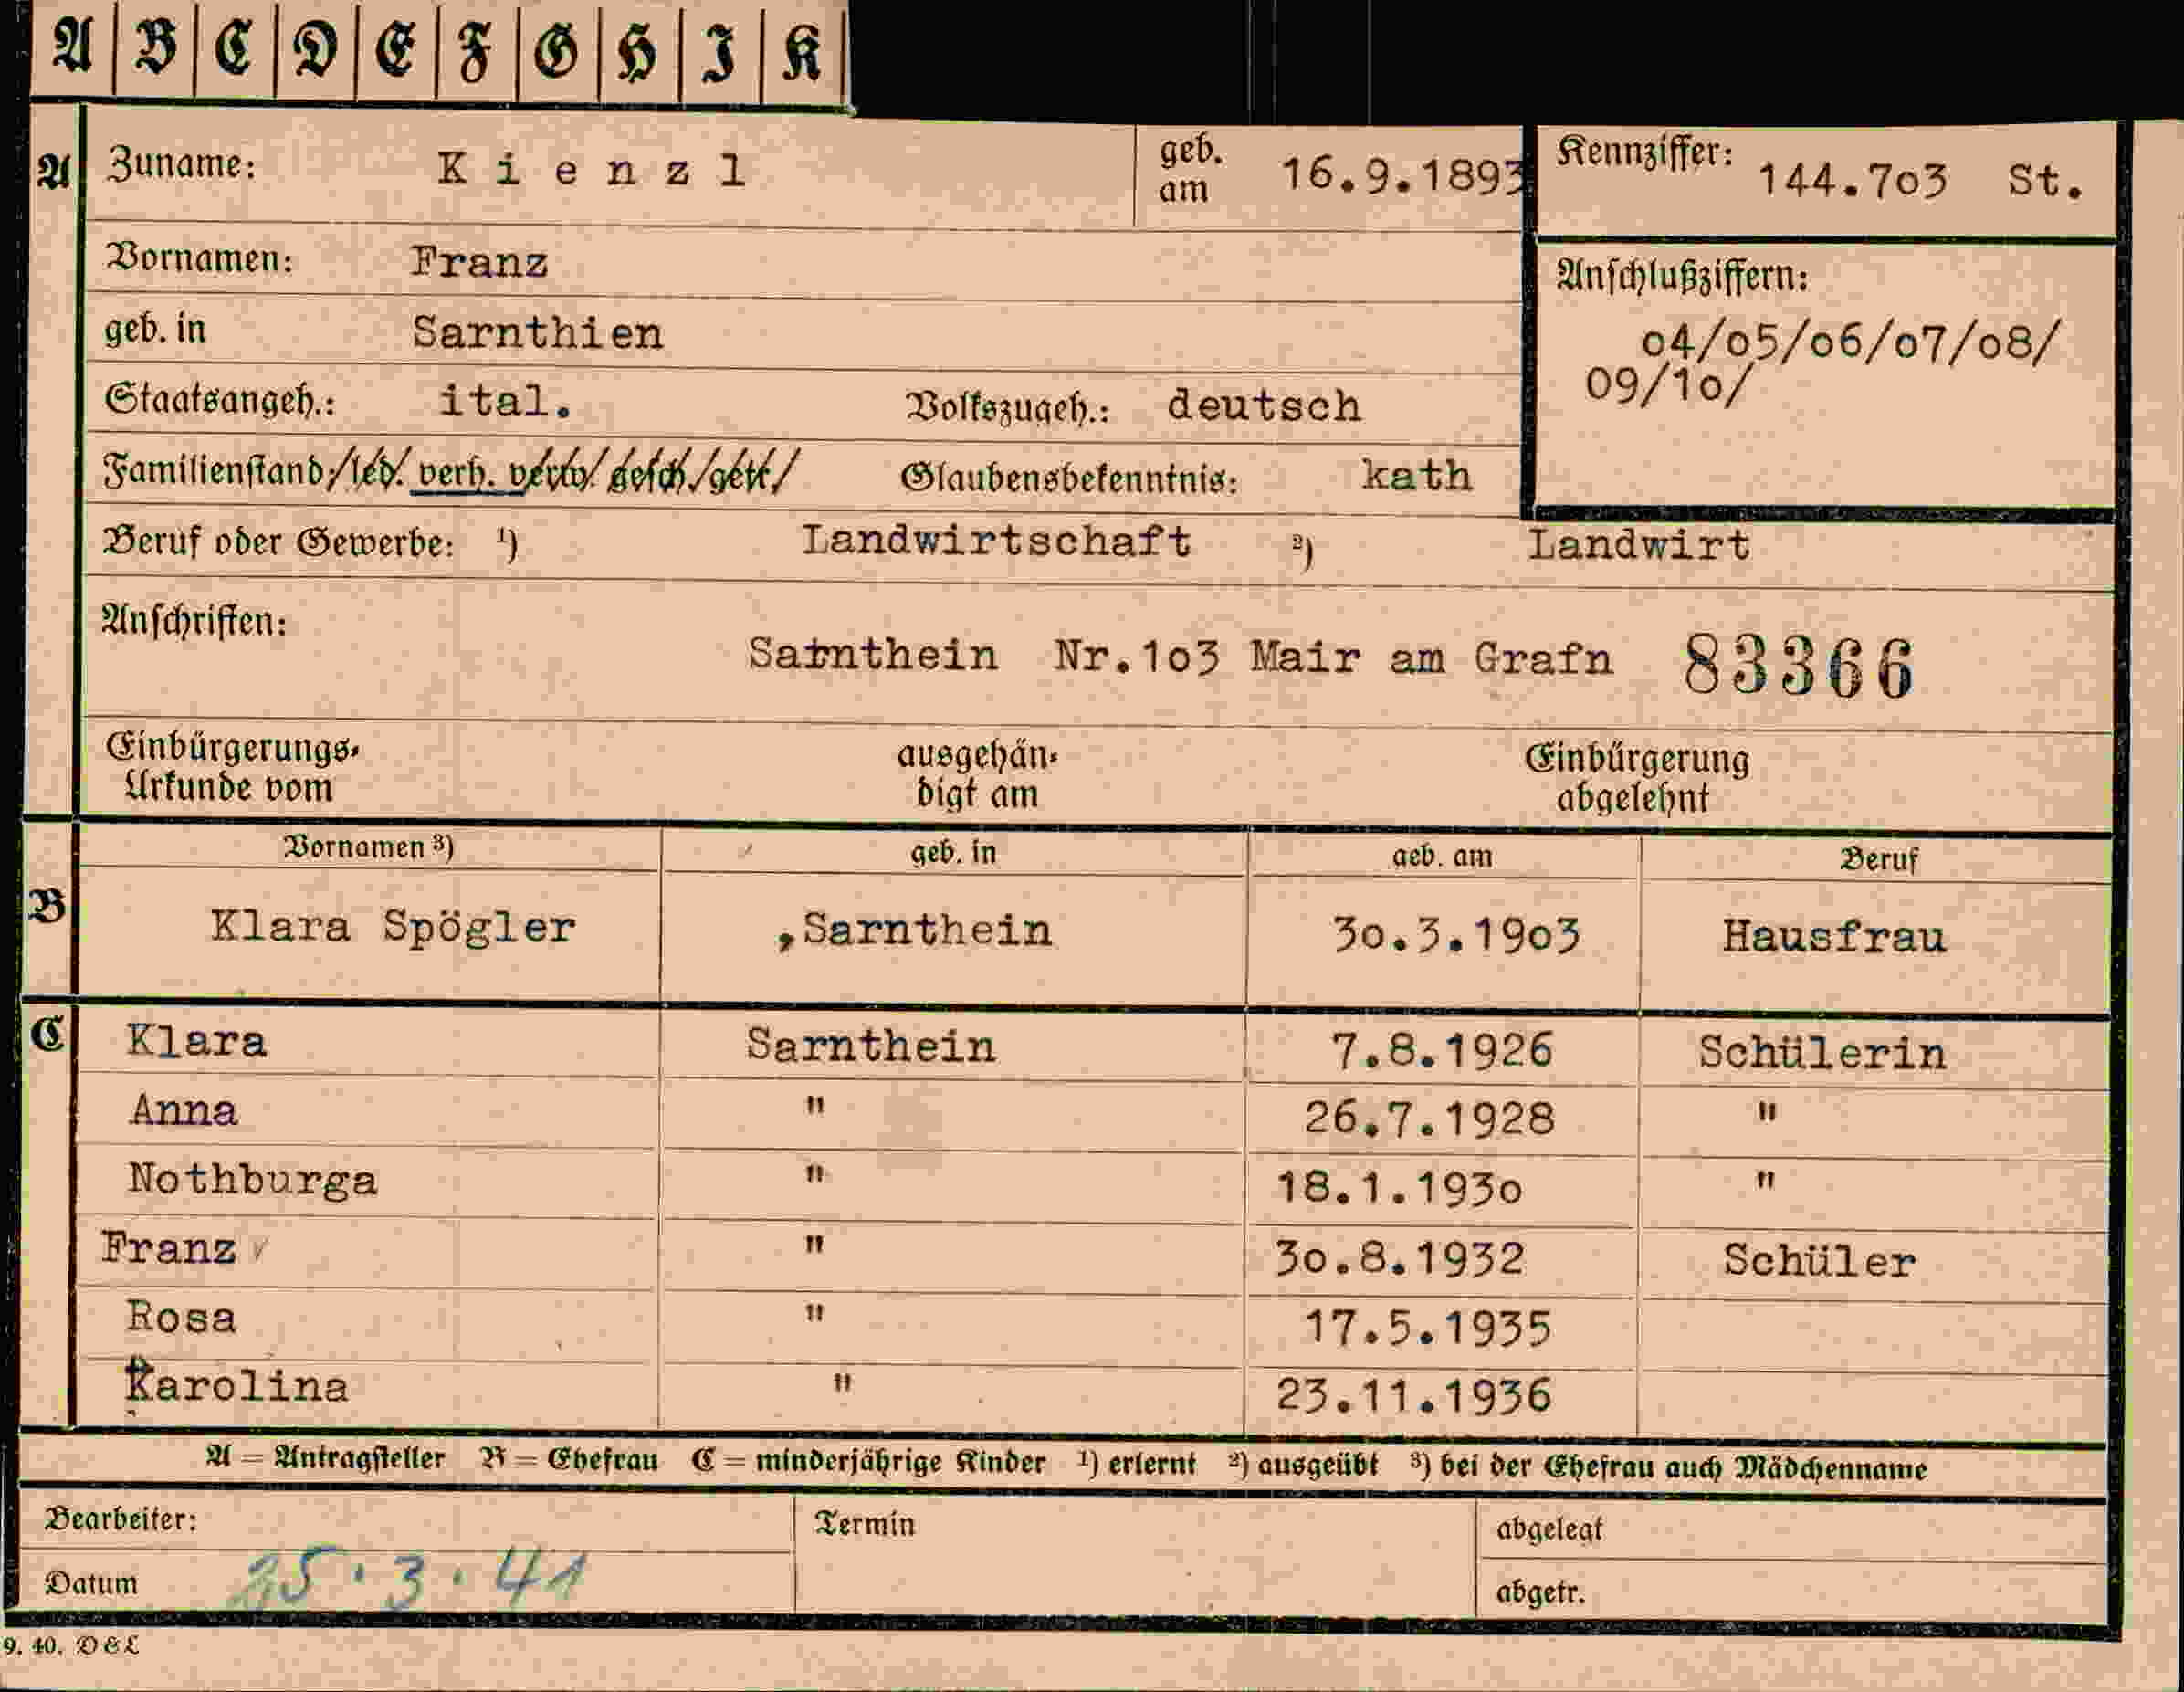 A | B | C | D | E | F | G | H | I | K
A Zuname: Kienzl geb. am 16.9.1893 Kennziffer: 144.7o3 St.
Vornamen: Franz
Anschlußziffern:
geb. in Sarnthien
o4/o5/o6/o7/o8/
09/1o/
Staatsangeh.: ital. Volkszugeh.: deutsch
Familienstand: led. verh. verw. gesch. getr. Glaubensbekenntnis: kath
Beruf oder Gewerbe: ¹) Landwirtschaft ²) Landwirt
Anschriften:
Sarnthein Nr.1o3 Mair am Grafn 83366
Einbürgerungs- ausgehän- Einbürgerung
Urkunde vom digt am abgelehnt
Vornamen ³) geb. in geb. am Beruf
B Klara Spögler ,Sarnthein 3o.3.19o3 Hausfrau
C Klara Sarnthein 7.8.1926 Schülerin
Anna " 26.7.1928 "
Nothburga " 18.1.193o "
Franz " 3o.8.1932 Schüler
Rosa " 17.5.1935
Karolina " 23.11.1936
A = Antragsteller B = Ehefrau C = minderjährige Kinder ¹) erlernt ²) ausgeübt ³) bei der Ehefrau auch Mädchenname
Bearbeiter: Termin abgelegt
Datum 25.3.41 abgetr.
9. 40. D & L